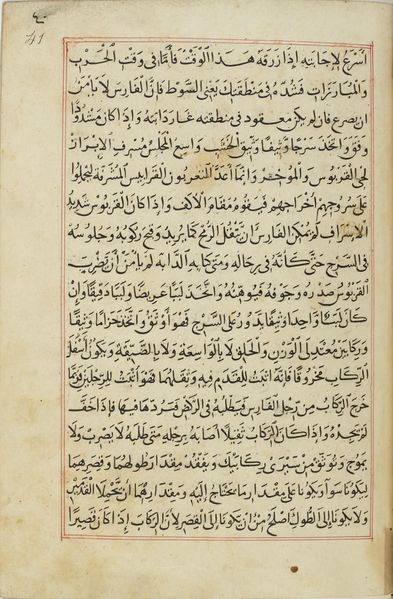 ٤٠
41
اسرع لاجابته اذا زرقه هذا الوقت فاما فى وقت الحرب
والمبارزات فتشده فى منطقتك يعنى السوط فان الفارس لا يامن
ان يصرع فان لم يكن معقود فى منطقته غار دابته واذا كان مشدودا
وقى واتخذ سرجا وثيقا وثيق الخشب واسع المجلس مشرف
القربوس والموخر وانما اعد القرابيس المشرفة ليحملوا
على سروجهم اخراجهم مقام الاكف واذا كان القربوس شديد
الاشراف لم يمكن الفارس ان يتنقل الرمح كما يريد وقبح ركوبه وجلوسه
فى السرج حتى كانه فى رحاله ومتى كابه الدابة لم يامن ان يضرب
القربوس صدره وجوفه واتخذ لببا عريضا ولببا دقيقا وان
كان لببا واحدا وثيقا يدور على السرج فهو اوثق واتخذ حزاما وثيقا
وركابين معتدلى الوزن والحلق لا بالواسعة ولا بالضيقة ويكون اثقل
الركاب فانه اثبت للقدم فيه وثقلهما فهو اثبت للرجلين فربما
خرج الركاب من رجل الفارس فيطلبه فى الركض فيردها فيها فاذا خف
لم يجده واذا كان الركاب ثقيلا اصابه برجله متى طلبه لا يضرب ولا
يموج وتوثق من سيرى ركابيك وتفقد مقدار طولهما وقصرهما
ليكونا سوا ويكونا على مقدار ما يحتاج اليه ومقدارهما ان تحمل القدمين
ولان يكونا الى الطول اصلح من ان يكونا الى القصر لان الركاب اذا كان قصيرا